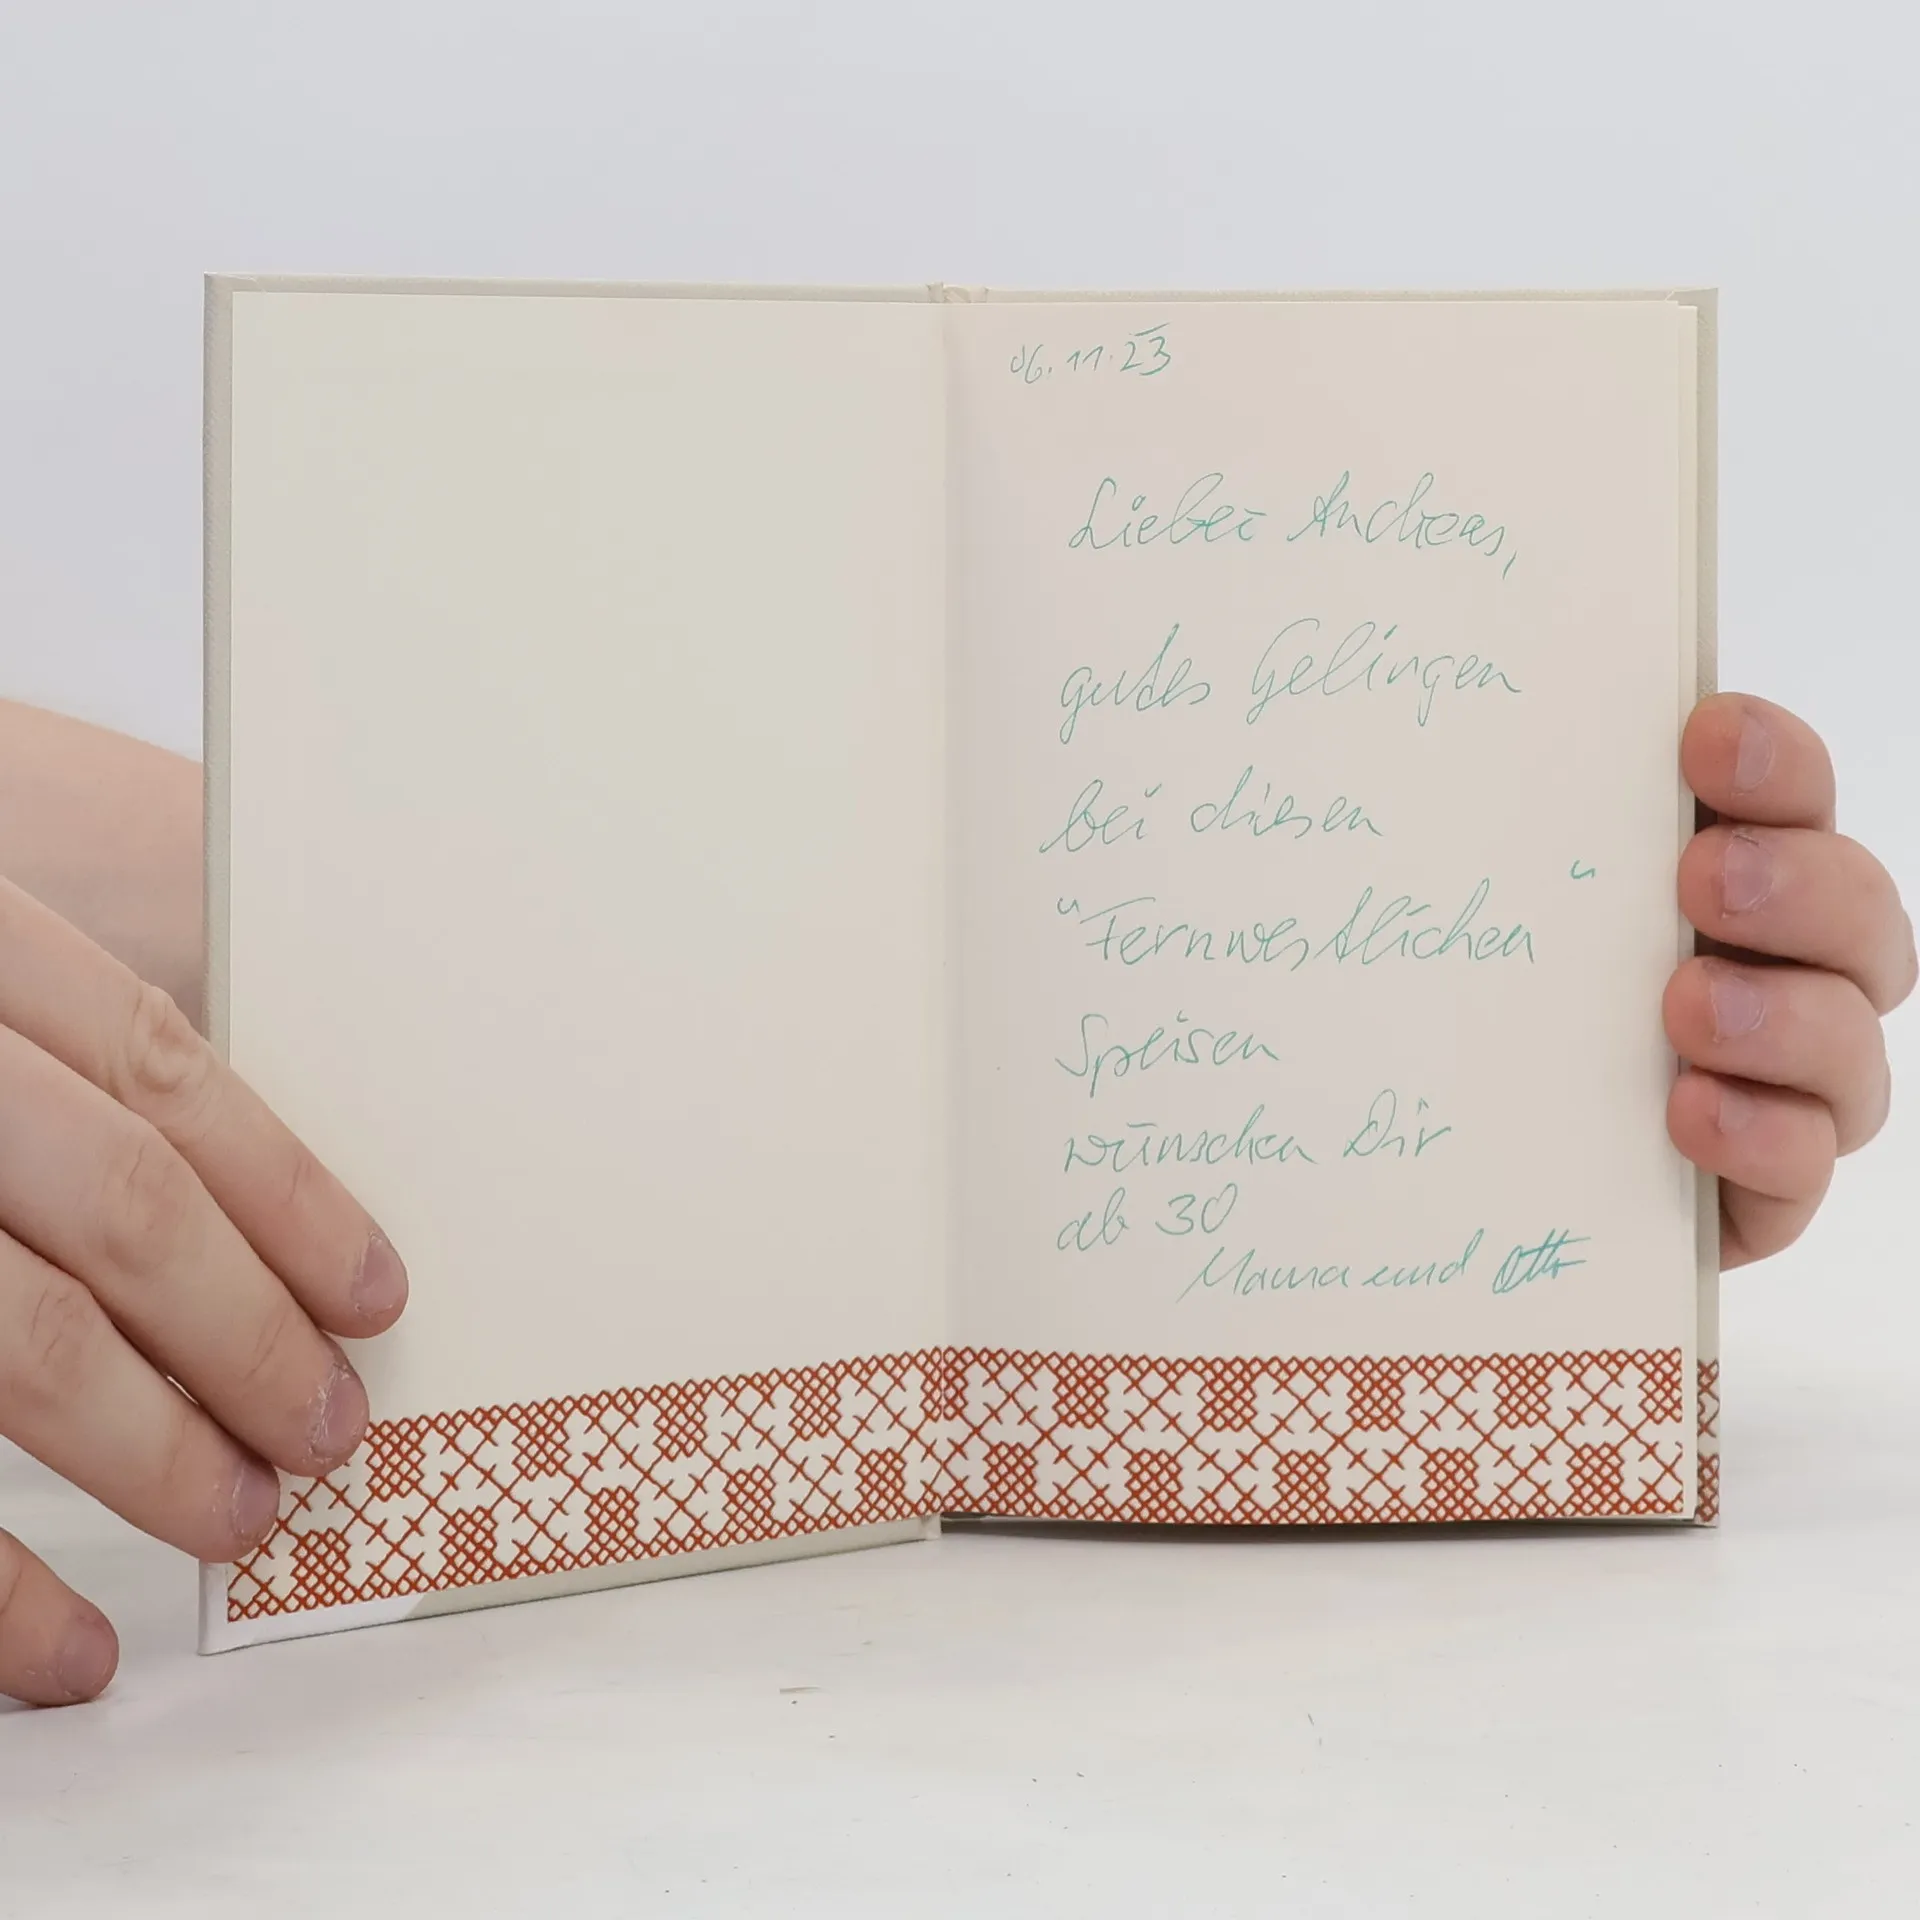 06.11.23
Lieber Andreas,
gutes Gelingen
bei diesen
"Fernwestlichen"
Speisen
wünschen Dir
ab 30
Mama und Otto